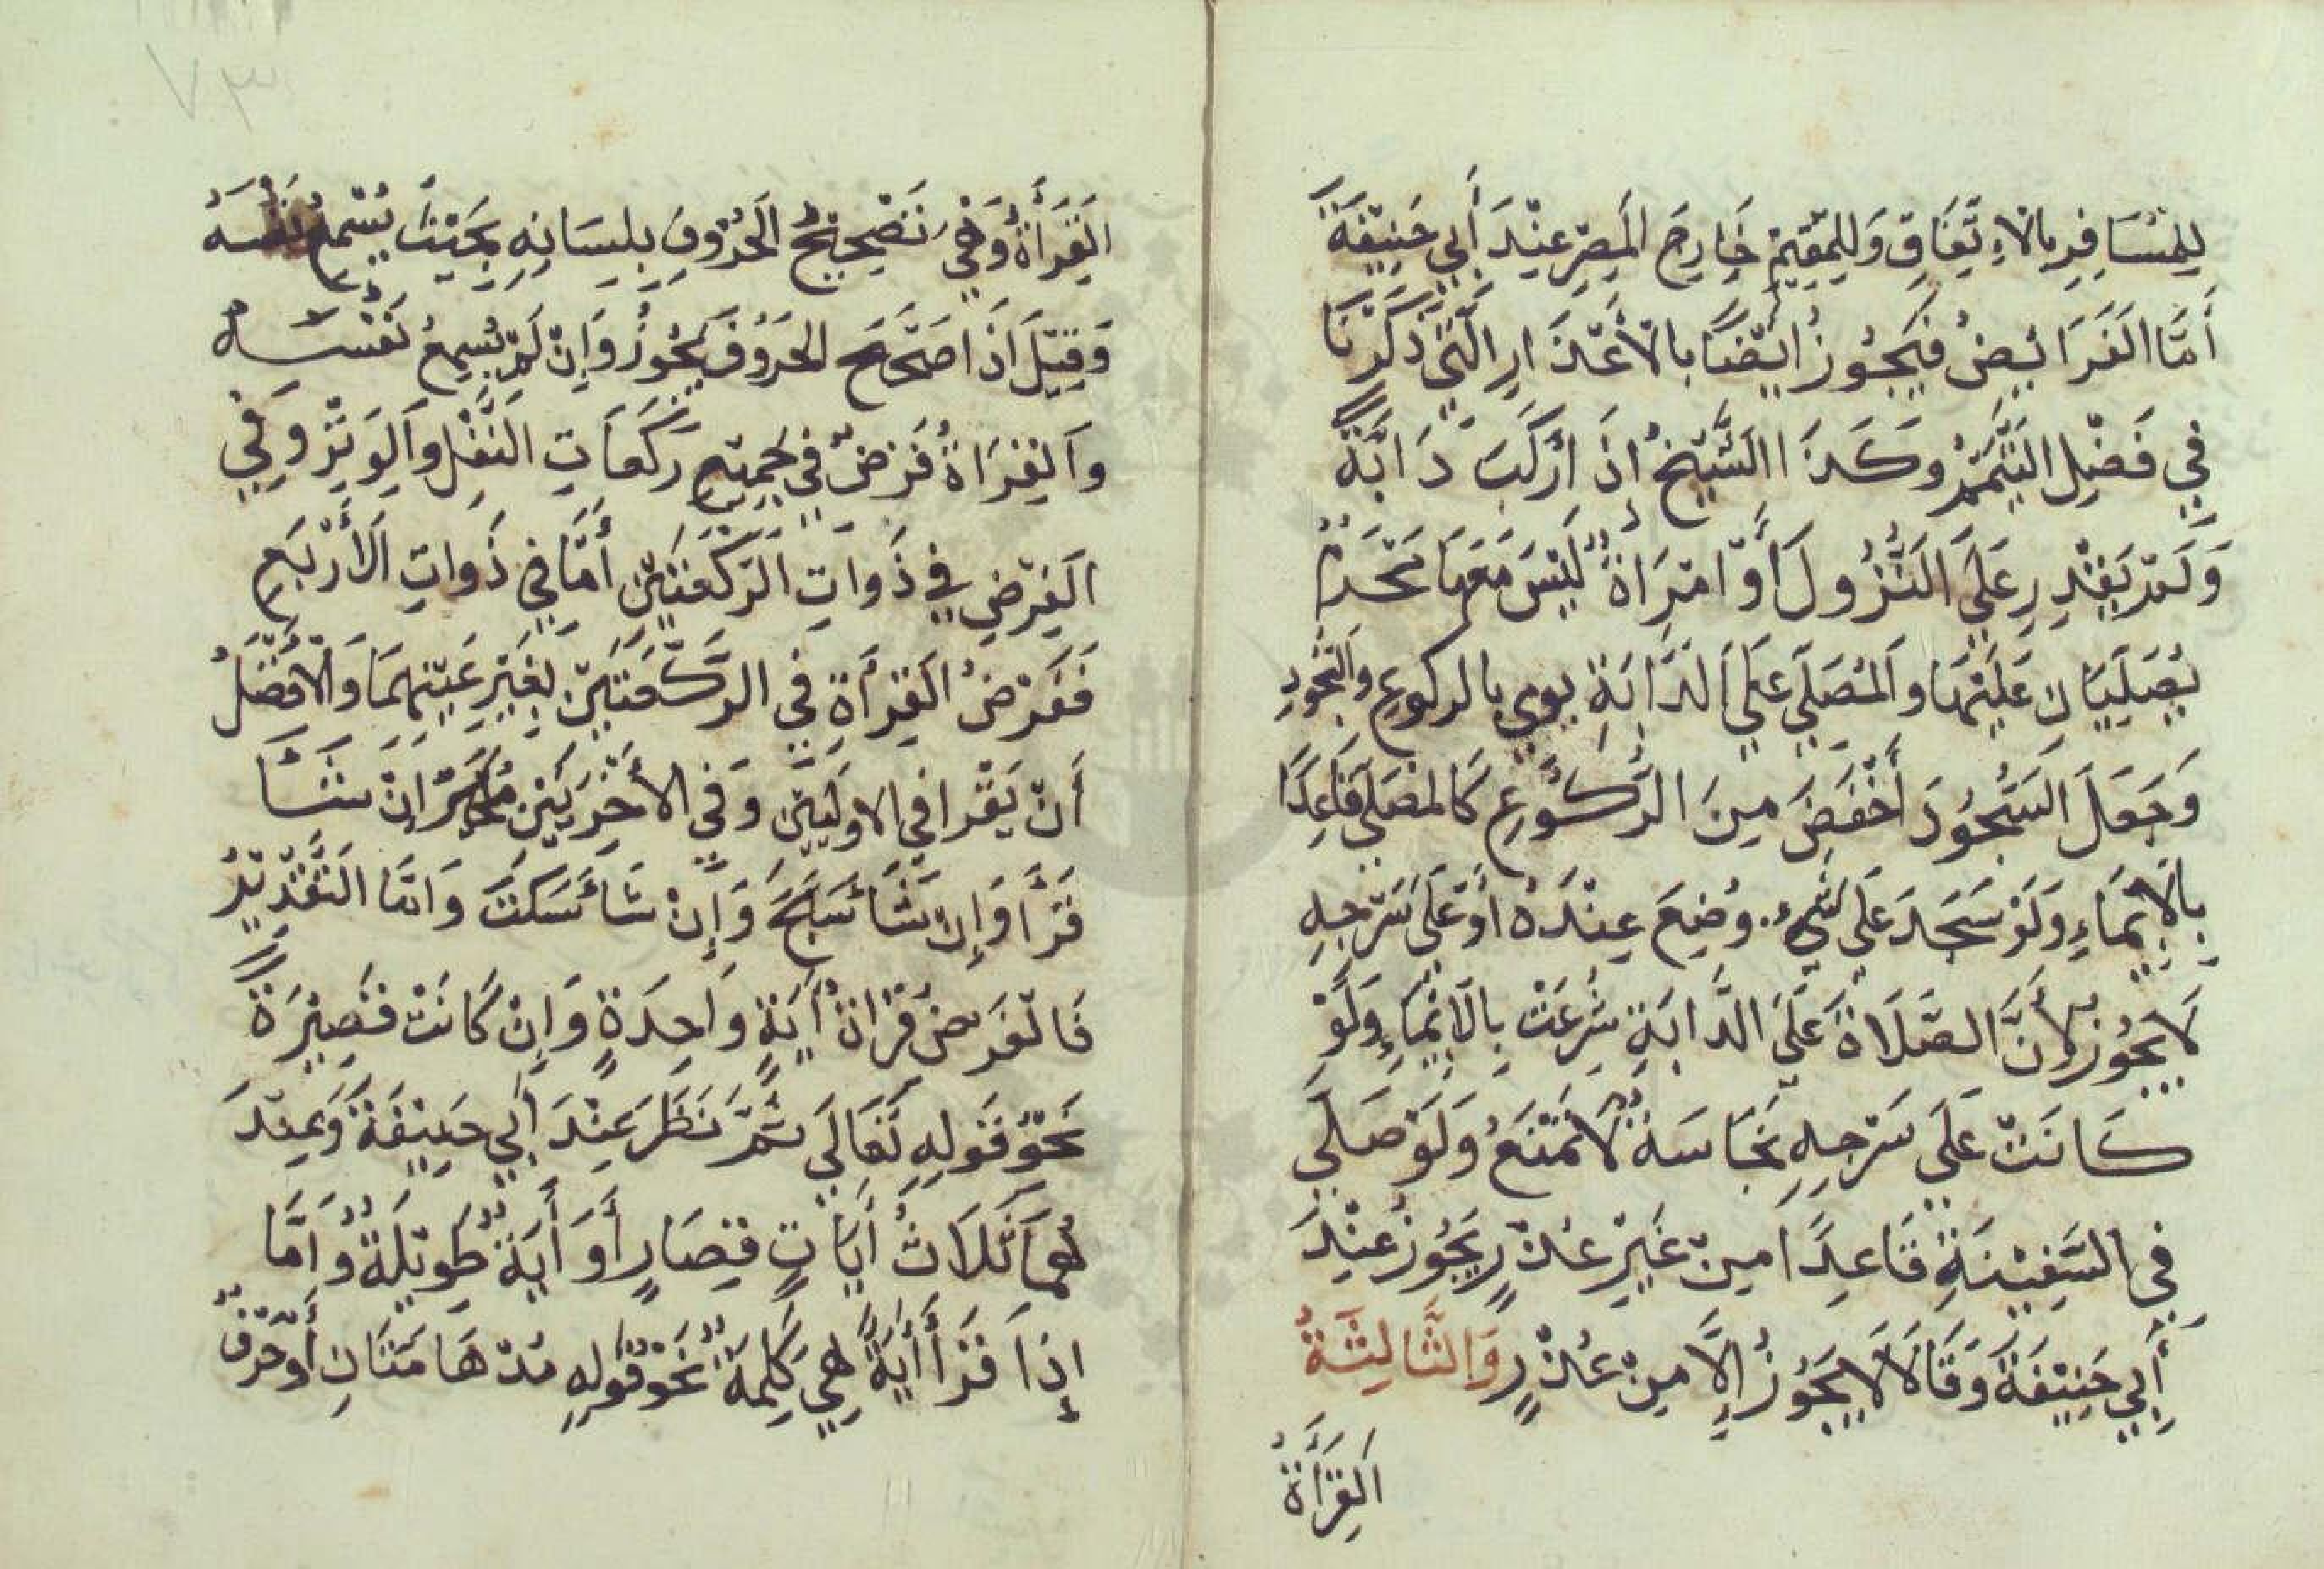 لِلْمُسَافِرِ بِالْاِتِّفَاقِ وَلِلْمُقِيْمِ خَارِجَ الْمِصْرِ عِنْدَ أَبِي حَنِيْفَةَ
أَمَّا الْفَرَايِضُ فَيَجُوْزُ اَيْضًا بِالْأَعْذَارِ الَّتِي ذَكَرْنَا
فِي فَصْلِ التَّيَمُّمِ وَكَذَا الشَّيْخُ إِذَا رَكِبَ دَابَّةً
وَلَمْ يَقْدِرْ عَلَى النُّزُولِ أَوْ امْرَاةٌ لَيْسَ مَعَهَا مَحْرَمٌ
يُصَلِّيَانِ عَلَيْهَا وَالْمُصَلِّي عَلَى الدَّابَةِ يومي بالركوع والسجودِ
وَجَعَلَ السُّجُوْدَ أَخْفَضَ مِنَ الرُّكُوْعِ كَالْمُصَلِّي قَاعِدًا
بِالْإِيْمَاءِ وَلَوْ سَجَدَ عَلَى شَيْءٍ وُضِعَ عِنْدَهُ اَوْ عَلَى سَرْجِهِ
لَا يَجُوْزُ لِأَنَّ الصَّلَاةَ عَلَى الدَّابَةِ شُرِعَتْ بِالْإِيْمَاءِ وَلَوْ
كَانَتْ عَلَى سَرْجِهِ نَجَاسَةٌ لَا تَمْنَعُ وَلَوْ صَلَّى
فِي السَّفِيْنَةِ قَاعِدًا مِنْ غَيْرِ عُذْرٍ يَجُوْزُ عِنْدَ
أَبِي حَنِيْفَةَ وَقَالَا لَا يَجُوْزُ إِلَّا مِنْ عُذْرٍ وَالثَّالِثَةُ
اَلْقِرَأَةُ
الْقِرَأَةُ وَهِيَ تَصْحِيْحُ الْحُرُوْفِ بِلِسَانِهِ بِحَيْثُ يُسْمِعُ نَفْسَهُ
وَقِيْلَ اِذَا صَحَّحَ الْحُرُوْفَ يَجُوْزُ وَإِنْ لَمْ يُسْمِعْ نَفْسَهُ
وَالْقِرَاةُ فَرْضٌ فِي جَمِيْعِ رَكَعَاتِ النَّفْلِ وَالْوِتْرِ وَفِي
الْفَرْضِ فِي ذَوَاتِ الرَّكْعَتَيْنِ أَمَّا فِي ذَوَاتِ الْأَرْبَعِ
فَفَرْضُ الْقِرَأَةِ فِي الرَّكْعَتَيْنِ بِغَيْرِ عَيْنِهِمَا وَالْاَفْضَلُ
أَنْ يَقْرَا فِي الْاُوْلَيَيْنِ وَفِي الْأُخْرَيَيْنِ مُخَيَّرٌ اِنْ شَا
قَرَأَ وَإِنْ شَاءَ سَبَّحَ وَإِنْ شَاءَ سَكَتَ وَامَّا التَّقْدِيْرُ
فَالْفَرْضُ قِرْاةُ أَيَةٍ وَاحِدَةٍ وَإِنْ كَانَتْ قَصِيْرَةً
نَحْوُ قَوْلِهِ تَعَالَى ثُمَّ نَظَرَ عِنْدَ أَبِي حَنِيْفَةَ وَعِنْدَ
هُمَا ثَلَاثُ أَيَاتٍ قِصَارٍ أَوْ أَيَةٌ طَوِيْلَةٌ وَاَمَّا
إِذَا قَرَأَ أَيَةً هِيَ كَلِمَةٌ نَحْوُ قَوْلِهِ مُدْهَامَّتَانِ أَوْ حَرْفٌ